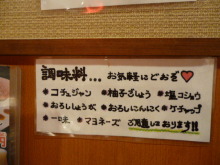 調味料… お気軽にどおぞ♥
＊コチュジャン ＊柚子ごしょう ＊塩コショウ
＊おろししょうが ＊おろしにんにく ＊ケチャップ
＊一味 ＊マヨネーズ ご用意しております!!